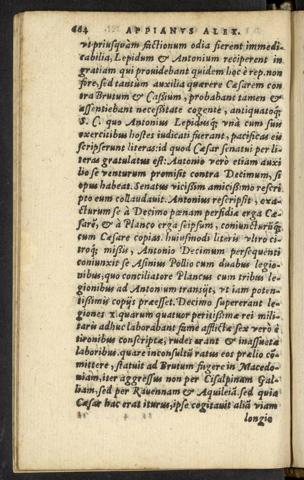 684 APPIANVS ALEX.
vt priusquàm factionum odia fierent immedi-
cabilia, Lepidum & Antonium reciperent in
gratiam qui prouidebant quidem hoc è rep. non
fore, sed tantùm auxilia quærere Cæsarem con
tra Brutum & Cassium, probabant tamen &
assentiebant necessitate cogente, antiquatoq;
S. C. quo Antonius Lepidusq; vnà cum suis
exercitibus hostes iudicati fuerant, pacificas eis
scripserunt literas: id quod Cæsar senatui per li-
teras gratulatus est: Antonio verò etiam auxi
lio se venturum promisit contra Decimum, si
opus habeat. Senatus vicissim amicissimo rescri
pto eum collaudauit. Antonius rescripsit, exa-
cturum se à Decimo pœnam perfidia erga Cæ-
sarē, & à Planco erga seipsum, coniuncturūq;
cum Cæsare copias. huiusmodi literis vltro ci-
troq; missis, Antonio Decimum persequenti
coniunxit se Asinius Pollio cum duabus legio-
nibus, quo conciliatore Plancus cum tribus le-
gionibus ad Antonum transijt, vt iam poten-
tissimis copijs præesset. Decimo supererant le-
giones x. quarum quatuor peritissimæ rei mili-
taris adhuc laborabant fame afflictæ: sex verò è
tironibus conscriptæ, rudes erant & inassuetæ
laboribus. quare inconsultū ratus eos prælio cō-
mittere, statuit ad Brutum fugere in Macedo-
niam, iter aggressus non per Cisalpinam Gal-
liam, sed per Rauennam & Aquileiā. sed quia
Cæsar hac erat iturus, ipse cogitauit aliā viam
longio